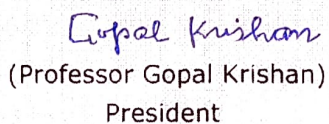 Gopal Krishan
(Professor Gopal Krishan)
President